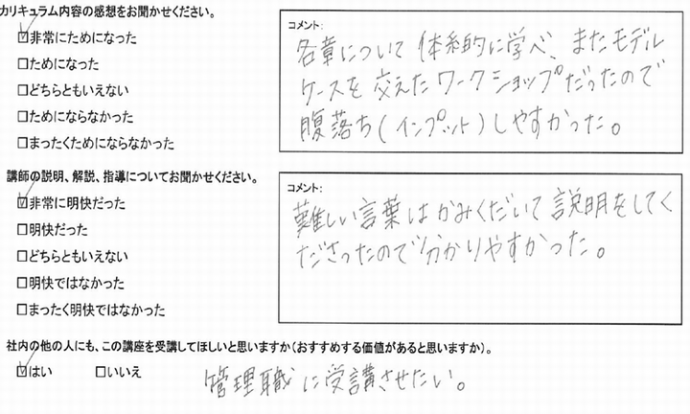 カリキュラム内容の感想をお聞かせください。
☑非常にためになった
□ためになった
□どちらともいえない
□ためにならなかった
□まったくためにならなかった
コメント:
各章について体系的に学べ、またモデル
ケースを交えたワークショップだったので
腹落ち(インプット)しやすかった。
講師の説明、解説、指導についてお聞かせください。
☑非常に明快だった
□明快だった
□どちらともいえない
□明快ではなかった
□まったく明快ではなかった
コメント:
難しい言葉はかみくだいて説明をしてく
ださったので分かりやすかった。
社内の他の人にも、この講座を受講してほしいと思いますか(おすすめする価値があると思いますか)。
☑はい □いいえ 管理職に受講させたい。